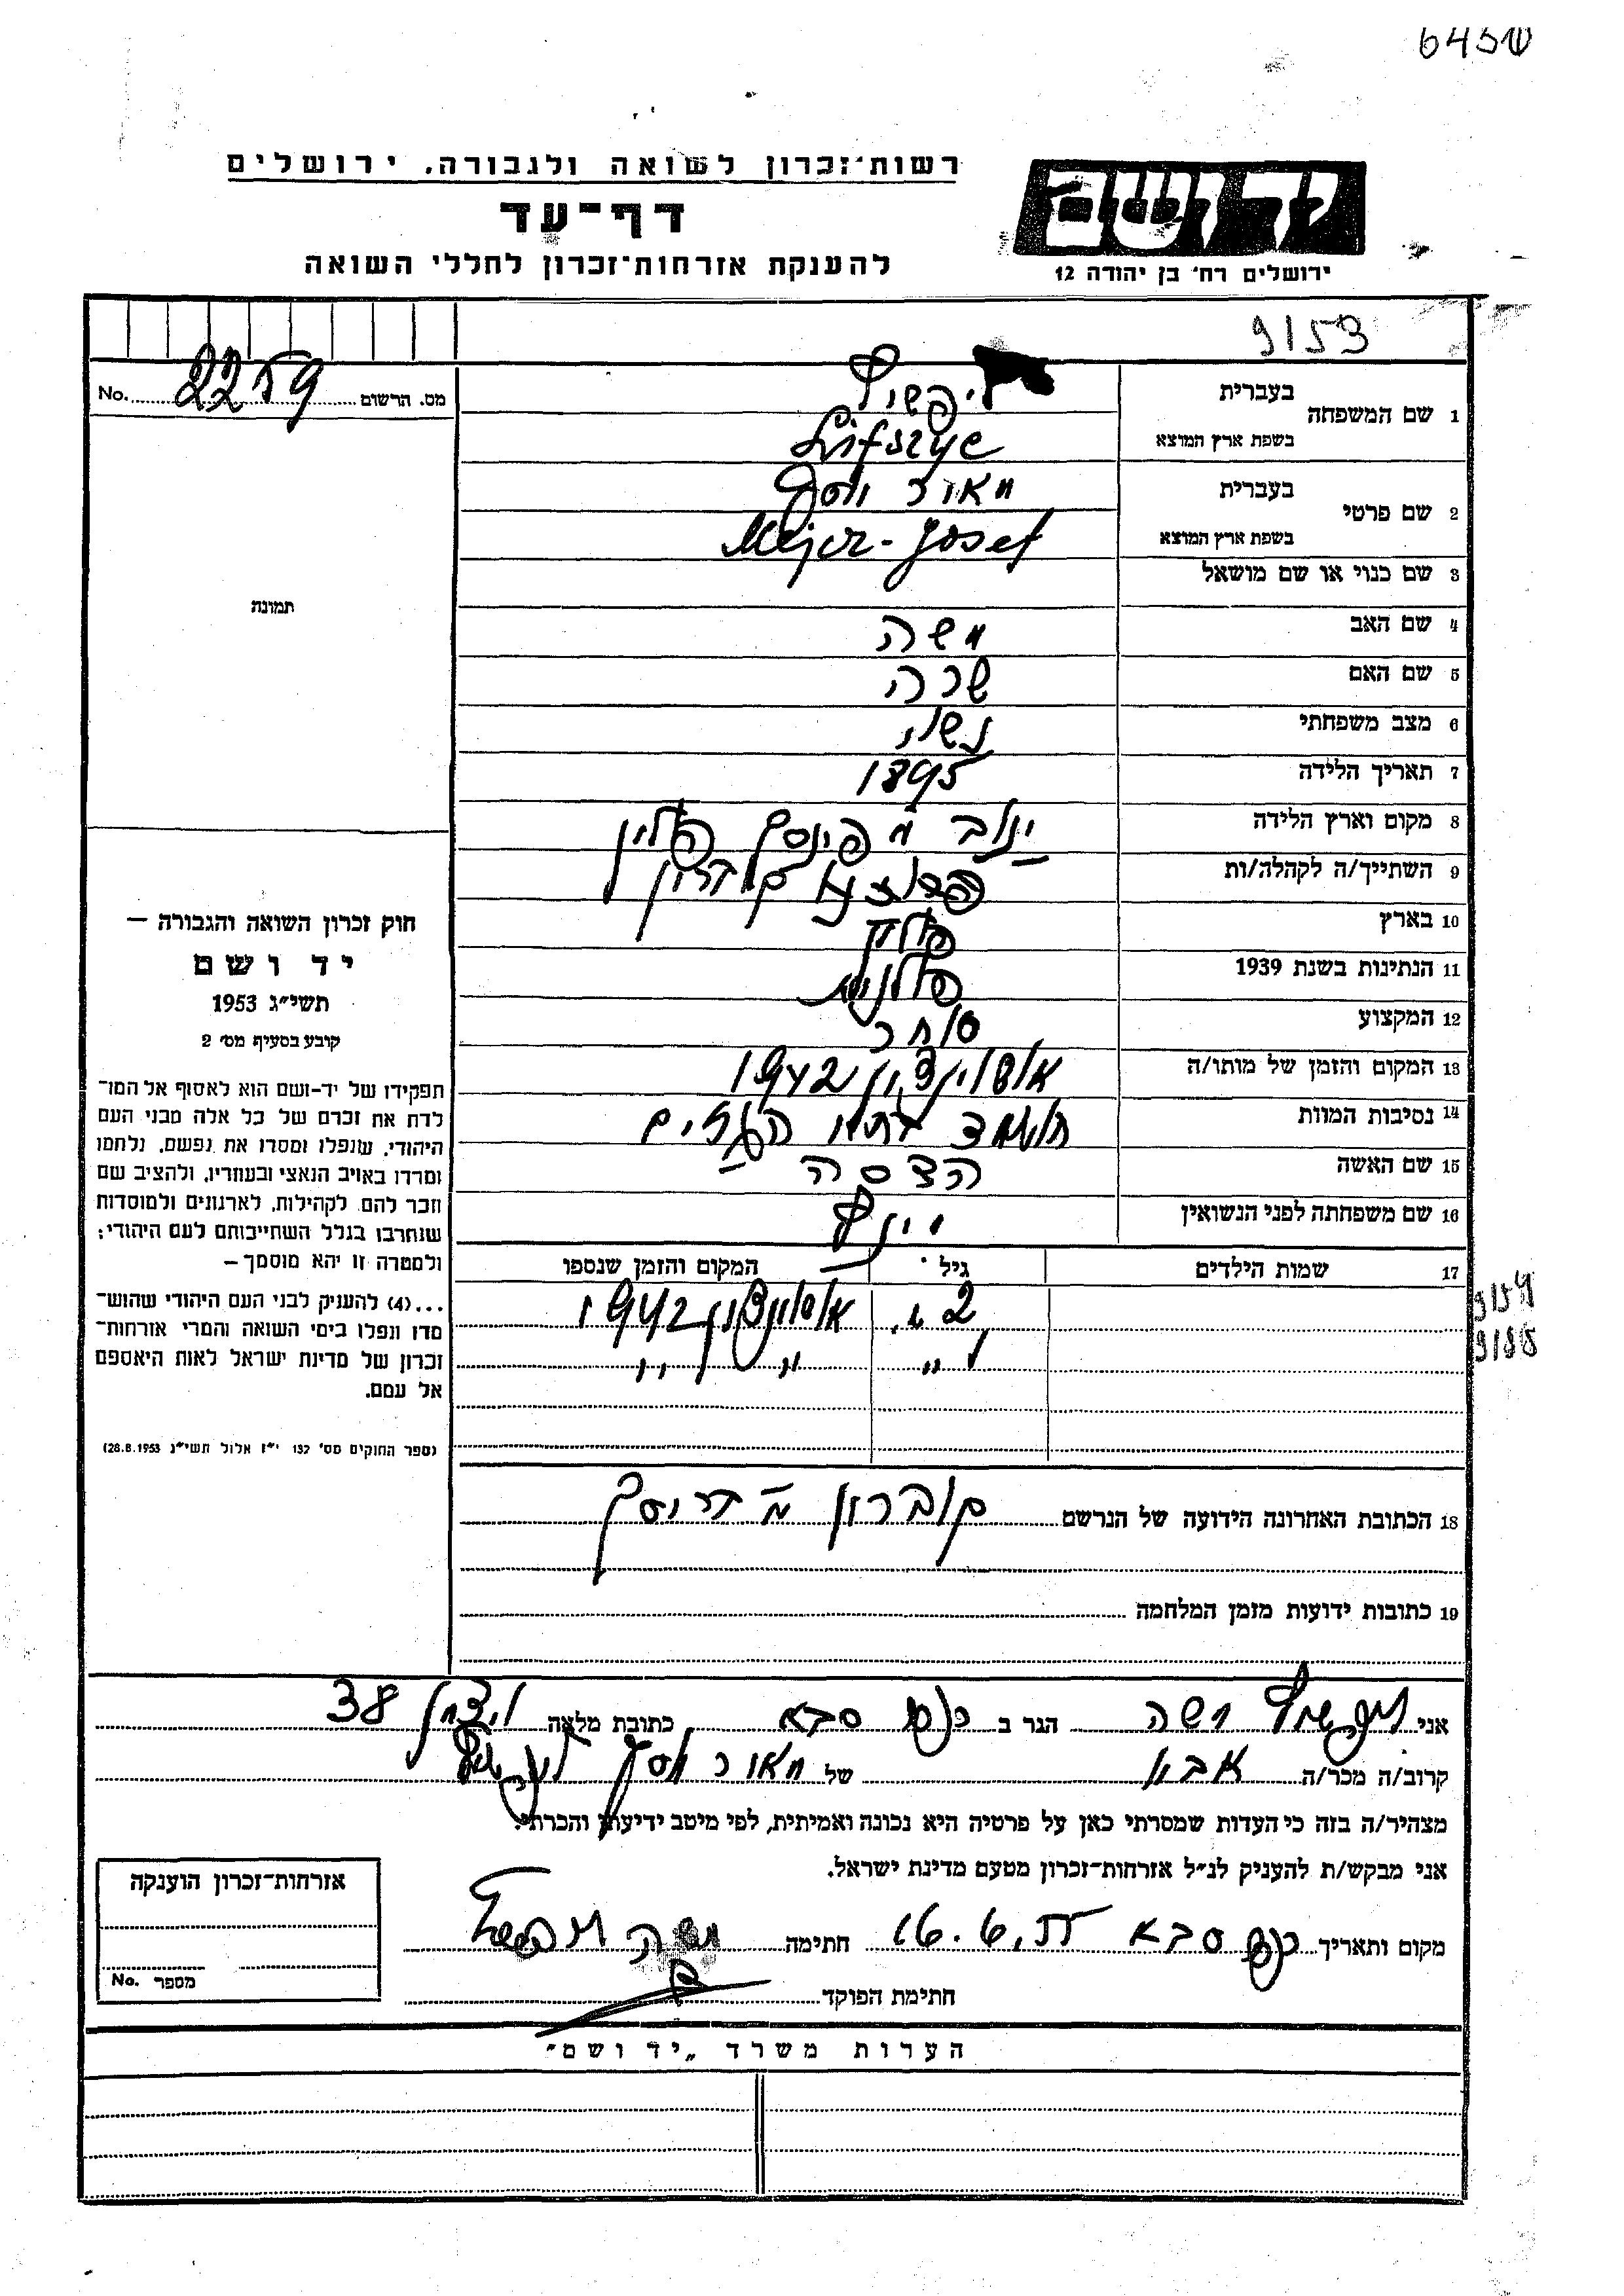 645ש
רשות־זכרון לשואה ולגבורה, ירושלים
דף־עד
להענקת אזרחות־זכרון לחללי השואה
יד ושם
ירושלים רח׳ בן יהודה 12
9153
מס. הרשום 2259 No.
תמונה
1 שם המשפחה בעברית ליפשיץ
בשפת ארץ המוצא Lifszyc
2 שם פרטי בעברית מאיר יוסף
בשפת ארץ המוצא Mejer-Josef
3 שם כנוי או שם מושאל
4 שם האב משה
5 שם האם שרה
6 מצב משפחתי נשוי
7 תאריך הלידה 1895
8 מקום וארץ הלידה ינוב פינסק פולין
9 השתייך/ה לקהלה/ות
10 בארץ פולין
11 הנתינות בשנת 1939 פולנית
12 המקצוע סוחר
13 המקום והזמן של מותו/ה 1942
14 נסיבות המוות
15 שם האשה הדסה
16 שם משפחתה לפני הנשואין
17 שמות הילדים גיל המקום והזמן שנספו
2 1942
" " "
9154
9155
18 הכתובת האחרונה הידועה של הנרשם קוברין
19 כתובות ידועות מזמן המלחמה
חוק זכרון השואה והגבורה —
יד ושם
תשי״ג 1953
קובע בסעיף מס׳ 2
תפקידו של יד-ושם הוא לאסוף אל המו־
לדת את זכרם של כל אלה מבני העם
היהודי, שנפלו ומסרו את נפשם, נלחמו
ומרדו באויב הנאצי ובעוזריו, ולהציב שם
וזכר להם לקהילות, לארגונים ולמוסדות
שנחרבו בגלל השתייכותם לעם היהודי;
ולמטרה זו יהא מוסמך —
...(4) להעניק לבני העם היהודי שהוש־
מדו ונפלו בימי השואה והמרי אזרחות־
זכרון של מדינת ישראל לאות היאספם
אל עמם.
(ספר החוקים מס׳ 132 י״ז אלול תשי״ג 28.8.1953)
אני ליפשיץ משה הגר ב כפר סבא כתובת מלאה 38
קרוב/ה מכר/ה אביו של מאיר יוסף ליפשיץ
מצהיר/ה בזה כי העדות שמסרתי כאן על פרטיה היא נכונה ואמיתית, לפי מיטב ידיעתי והכרתי.
אני מבקש/ת להעניק לנ״ל אזרחות־זכרון מטעם מדינת ישראל.
מקום ותאריך כפר סבא 16.6. חתימה משה ליפשיץ
חתימת הפוקד
אזרחות־זכרון הוענקה
מספר No.
הערות משרד „יד ושם״